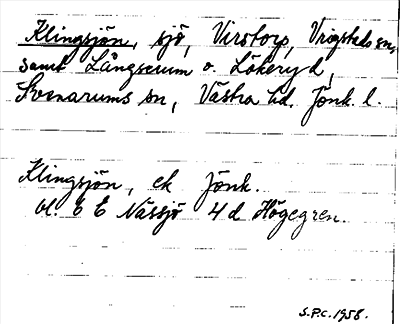 Klingsjön, sjö, Virstorp, Vrigstads sn,
samt Långserum o. Lökeryd,
Svenarums sn, Västra hd, Jönk. l.
Klingsjön, ek Jönk.
bl. 6 E Nässjö 4 d Högegren.
S.P.C. 1958.